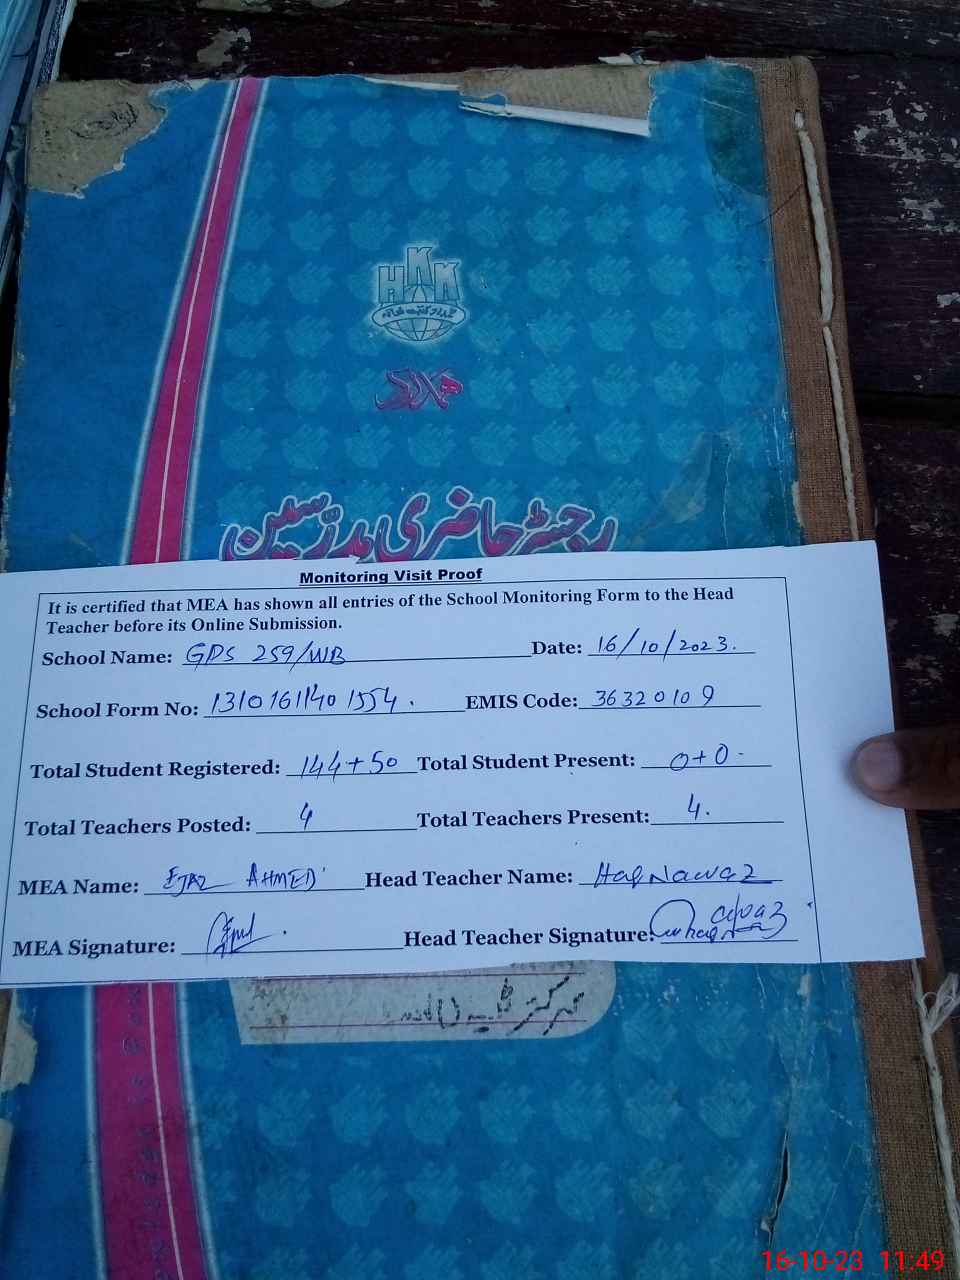 HKK
ہمدرد کتب خانہ
ہمدرد
رجسٹر حاضری مدرسین
Monitoring Visit Proof
It is certified that MEA has shown all entries of the School Monitoring Form to the Head
Teacher before its Online Submission.
School Name: GPS 259/WB Date: 16/10/2023.
School Form No: 1310161140 1554. EMIS Code: 36320109
Total Student Registered: 144+50 Total Student Present: 0+0
Total Teachers Posted: 4 Total Teachers Present: 4.
MEA Name: EJAZ AHMED Head Teacher Name: HaqNawaz
MEA Signature: Head Teacher Signature:
16-10-23 11:49